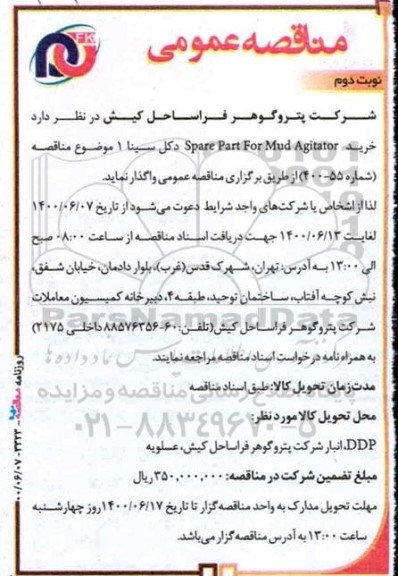 مناقصه عمومی
نوبت دوم
شرکت پتروگوهر فراساحل کیش در نظر دارد
خرید Spare Part For Mud Agitator دکل سینا ۱ موضوع مناقصه
(شماره ۵۵-۴۰۰) از طریق برگزاری مناقصه عمومی واگذار نماید.
لذا از اشخاص یا شرکت‌های واجد شرایط دعوت می‌شود از تاریخ ۱۴۰۰/۰۶/۰۷
لغایت ۱۴۰۰/۰۶/۱۳ جهت دریافت اسناد مناقصه از ساعت ۰۸:۰۰ صبح
الی ۱۳:۰۰ به آدرس: تهران، شهرک قدس(غرب)، بلوار دادمان، خیابان شفق،
نبش کوچه آفتاب، ساختمان توحید، طبقه ۴، دبیرخانه کمیسیون معاملات
شرکت پتروگوهر فراساحل کیش(تلفن: ۶۰-۸۸۵۷۶۳۵۶ داخلی ۲۱۷۵)
به همراه نامه درخواست اسناد مناقصه مراجعه نمایند.
مدت‌زمان تحویل کالا: طبق اسناد مناقصه
محل تحویل کالا مورد نظر:
DDP، انبار شرکت پتروگوهر فراساحل کیش، عسلویه
مبلغ تضمین شرکت در مناقصه: ۳۵۰,۰۰۰,۰۰۰ ریال
مهلت تحویل مدارک به واحد مناقصه‌گزار تا تاریخ ۱۴۰۰/۰۶/۱۷ روز چهارشنبه
ساعت ۱۳:۰۰ به آدرس مناقصه‌گزار می‌باشد.
ParsNamadData
۰۲۱-۸۸۳۴۹۶۷۰-۵
روزنامه مناقصه ۳۳۲۳ - ۰۰/۰۶/۰۷